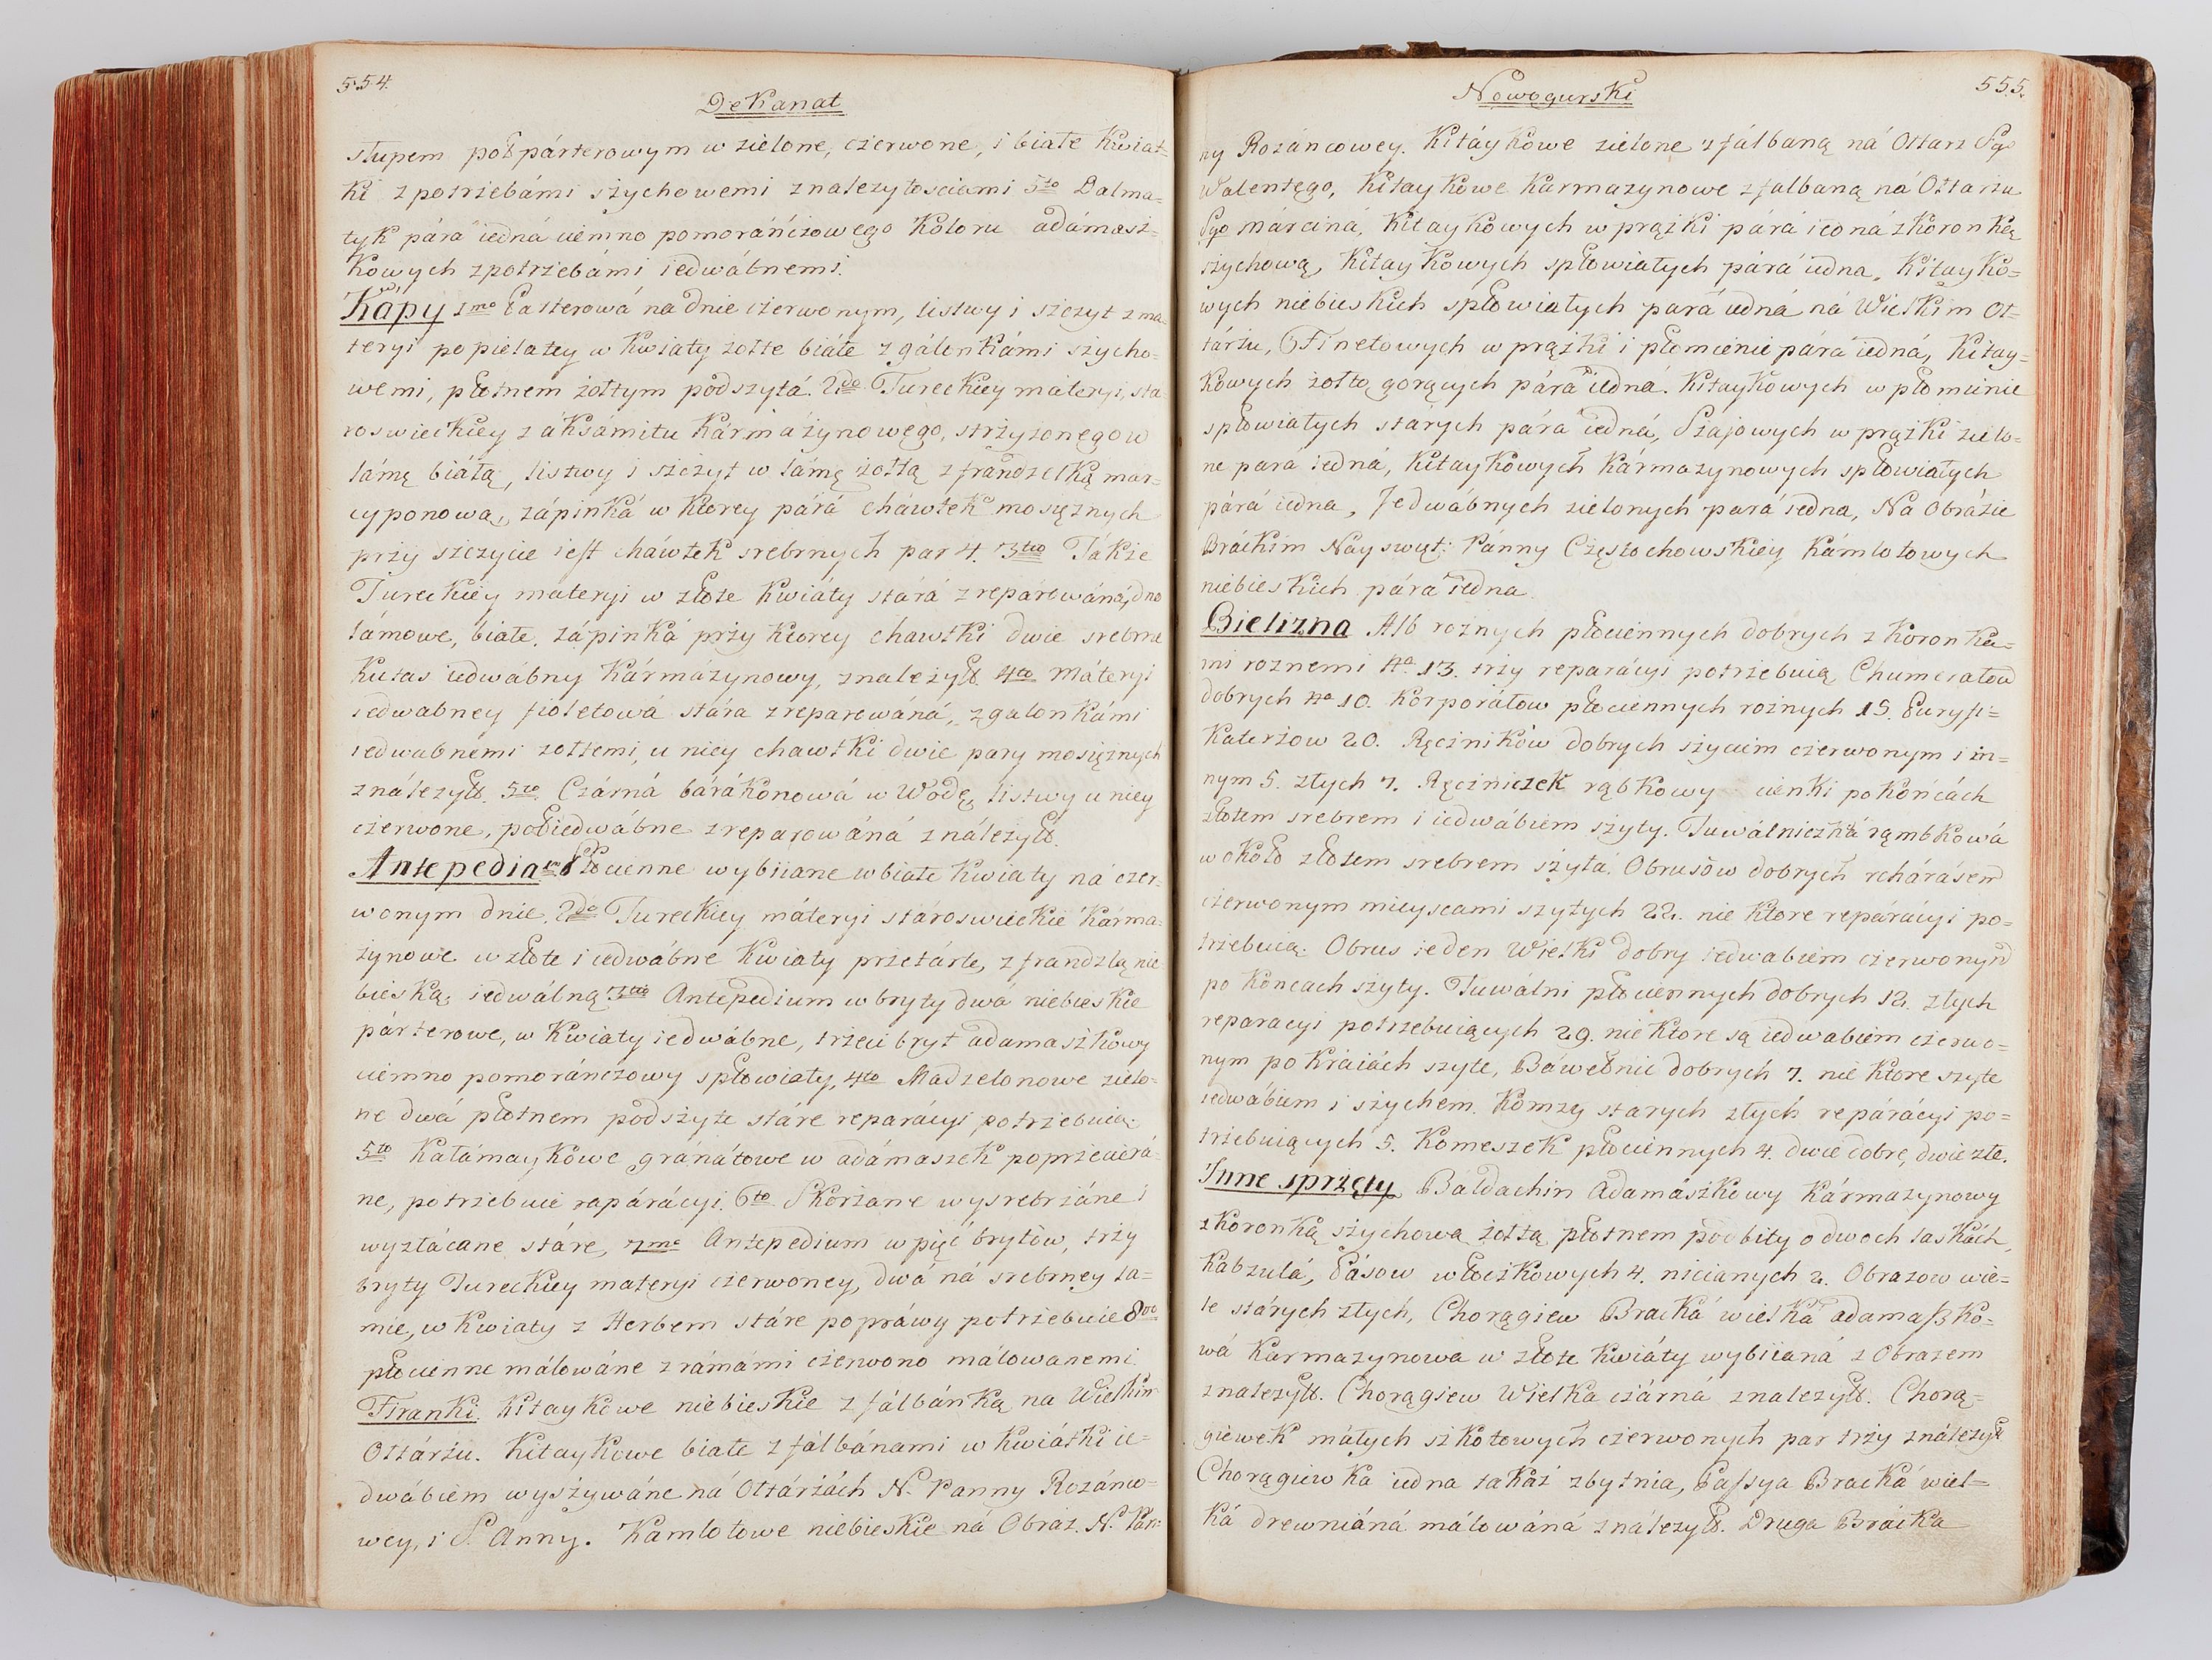 554.
DeKanat
słupem połpárterowym w zielone, czerwone, i białe Kwiat-
ki z potrzebámi szychowemi z nalezytosciami 5to Dalma=
tyk párá iedná ciemno pomoráńczowego Koloru adámasz=
kowych z potrzebámi iedwábnemi.
Kápy 1mo Parterowá na dnie czerwonym, listwy i szczyt z ma-
teryi popielatey w Kwiaty żołte biáłe z gálonkámi szycho-
wemi, płotnem żołtym podszytá. 2do Tureckiey máteryi, sta-
roswieckiey z áksámitu Kármázynowego, strzyżonego w
lámę biáłą, listwy i szczyt w lámę żołtą z frandzelką mar=
cyponową, zápinká w Ktorey párá cháwtek mosięznych
przy szczycie iest cháwtek srebrnych par 4. 3tio Tákże
Tureckiéy materyi w złote Kwiáty stará zreparowáná, dno
lámowe, białe, zápinká przy Ktorey chawtki dwie srebrne
Kutas iedwábny Kármázynowy, z należyt. 4to Máteryi
iedwabney fioletowá stára zreparowáná, z galonkámi
iedwabnemi zołtemi, u niey chawtki dwie pary mosięznych
z nálezyt. 5to Czárná bárákonowá w Wodę, listwy u niey
czerwone, połiedwábne zreparowáná z nálezyt.
Antepedia 1mo Płocienne wybiiane w białe Kwiaty ná czer-
wonym dnie, 2do Tureckiey máteryi stároswieckie Kárma-
zynowe w złote i iedwábne Kwiaty przetárte, z frandzlą nie-
bieską, iedwábną 3tio Antepedium w bryty dwá niebieskie
párterowe, w Kwiaty iedwábne, trzeci bryt adamaszkowy
ciemno pomoránczowy spłowiały, 4to Madzelonowe zielo-
ne dwá płotnem podszyte stáre reparácyi potrzebuią.
5to Kałámaykowe gránátowe w adámaszek poprzecierá-
ne, potrzebuie raparácyi. 6to Skorzane wysrebrzáne i
wyzłácane stáre, 7mo Antepedium w pięć brytów, trzy
bryty Tureckiey materyi czerwoney, dwá ná srebrney la=
mie, w Kwiaty z Herbem stáre popráwy potrzebuie 8vo
płocienne málowáne z rámámi czerwono málowanemi.
Firanki. Kitaykowe niebieskie z fálbánką na Wielkim
Ołtárzu. Kitaykowe białe z fálbánami w Kwiátki ie=
dwábiem wyszywáne ná Ołtárzách N. Panny Rozánco=
wey, i S. Anny. Kamlotowe niebieskie ná Obraz. N. Pan=
Nowogurski
555.
ny Rozáncowey. Kitáykowe zielone z fálbaną ná Ołtarz Sgo
Walentego, Kitaykowe Karmazynowe z falbaną ná Ołtarzu
Sgo Márciná, Kitaykowych w prążki párá iedná z Koronką
szychową, Kitaykowych spłowiałych párá iedna, Kitayko=
wych niebieskich spłowiałych pará iedná ná Wielkim Oł=
tárzu, Ofinetowych w prążki i płomienie párá iedná, Kitay=
kowych żołto gorących párá iedná. Kitaykowych w płomienie
spłowiałych stárych párá iedná, Szajowych w prążki zielo=
ne pará iedná, Kitaykowych Kármazynowych spłowiałych
párá iedna, Jedwábnych zielonych pará iedna, Na Obrázie
Brackim Nayswięt: Pánny Częstochowskiey Kámlotowych
niebieskich pára iedna.
Bielizna Alb roznych płociennych dobrych z Koronka=
mi roznemi No 13. trzy reparácyi potrzebuią Chumerałow
dobrych No 10. Korporáłow płociennych roznych 15. Puryfi=
Katerzow 20. Ręczników dobrych szyciem czerwonym i in=
nym 5. złych 7. Ręczniczek rąbkowy cienki po Końcách
złotem srebrem i iedwábiem szyty. Tuwálniczká rąmbkowá
w około złotem srebrem szytá. Obrusów dobrych rchárásem
czerwonym mieyscami szytych 22. nie Ktore reparácyi po=
trzebuią. Obrus ieden Wielki dobry iedwabiem czerwonym
po Koncach szyty. Tuwálni płociennych dobrych 12. złych
reparacyi potrzebuiących 29. nie Ktore są iedwabiem czerwo=
nym po Kraiách szyte, Báwełnic dobrych 7. nie Ktore szyte
iedwábiem i szychem. Komzy starych złych reparácyi po=
trzebuiących 5. Komeszek płociennych 4. dwie dobre, dwie złe.
Inne sprzęty Baldachin Adamászkowy Kármazynowy
z Koronką szychową żołtą płotnem podbity o dwoch laskách,
Kabzulá, Pásow włóczkowych 4. nicianych 2. Obrazow wie=
le stárych złych, Chorągiew Bracká wielká adamaszko=
wá Karmazynowa w złote Kwiáty wybiianá z Obrazem
z nalezyt. Chorągiew Wielka czárná z nalezyt. Chorą=
giewek máłych szkotowych czerwonych par trzy z nálezyt
Chorągiewka iedna takáż zbytnia, Passya Bracká wiel=
ká drewniáná málowáná z nálezyt. Druga Bráckа